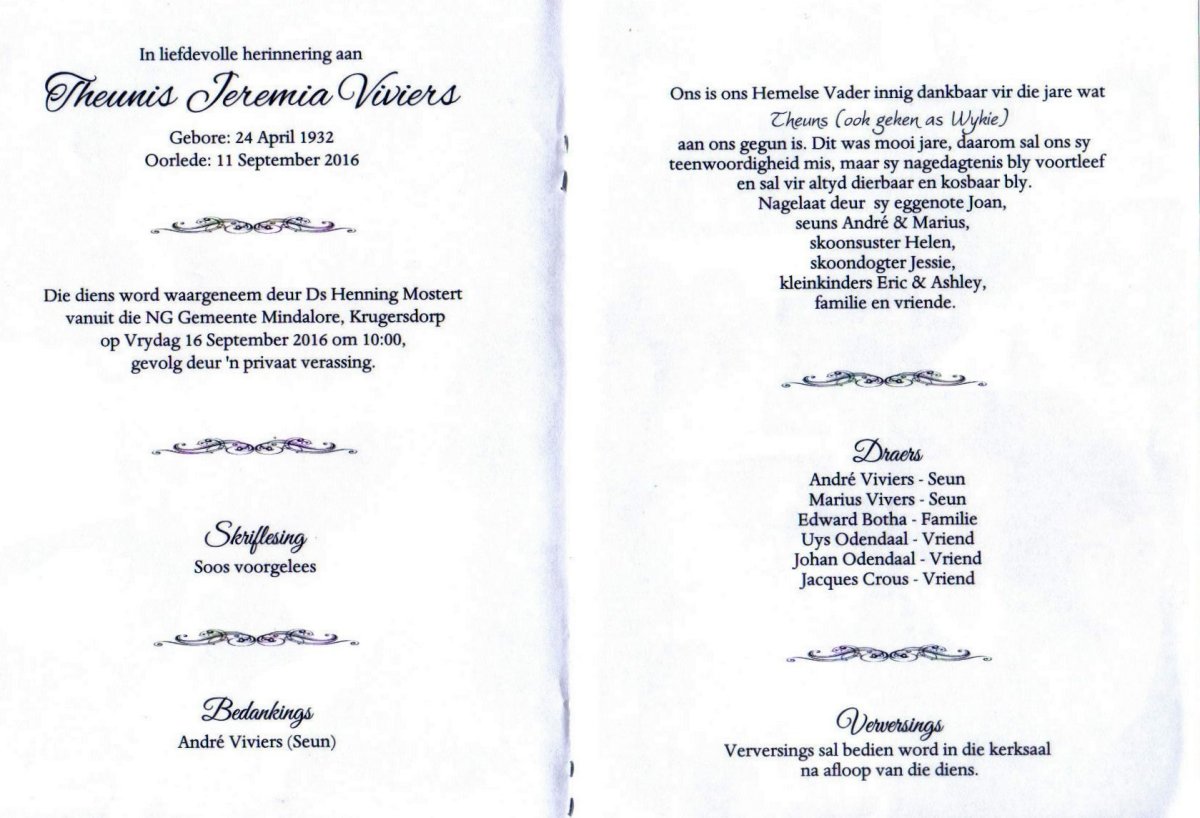 In liefdevolle herinnering aan
Theunis Jeremia Viviers
Gebore: 24 April 1932
Oorlede: 11 September 2016
Die diens word waargeneem deur Ds Henning Mostert
vanuit die NG Gemeente Mindalore, Krugersdorp
op Vrydag 16 September 2016 om 10:00,
gevolg deur 'n privaat verassing.
Skriflesing
Soos voorgelees
Bedankings
André Viviers (Seun)
Ons is ons Hemelse Vader innig dankbaar vir die jare wat
Theuns (ook geken as Wykie)
aan ons gegun is. Dit was mooi jare, daarom sal ons sy
teenwoordigheid mis, maar sy nagedagtenis bly voortleef
en sal vir altyd dierbaar en kosbaar bly.
Nagelaat deur sy eggenote Joan,
seuns André & Marius,
skoonsuster Helen,
skoondogter Jessie,
kleinkinders Eric & Ashley,
familie en vriende.
Draers
André Viviers - Seun
Marius Vivers - Seun
Edward Botha - Familie
Uys Odendaal - Vriend
Johan Odendaal - Vriend
Jacques Crous - Vriend
Verversings
Verversings sal bedien word in die kerksaal
na afloop van die diens.